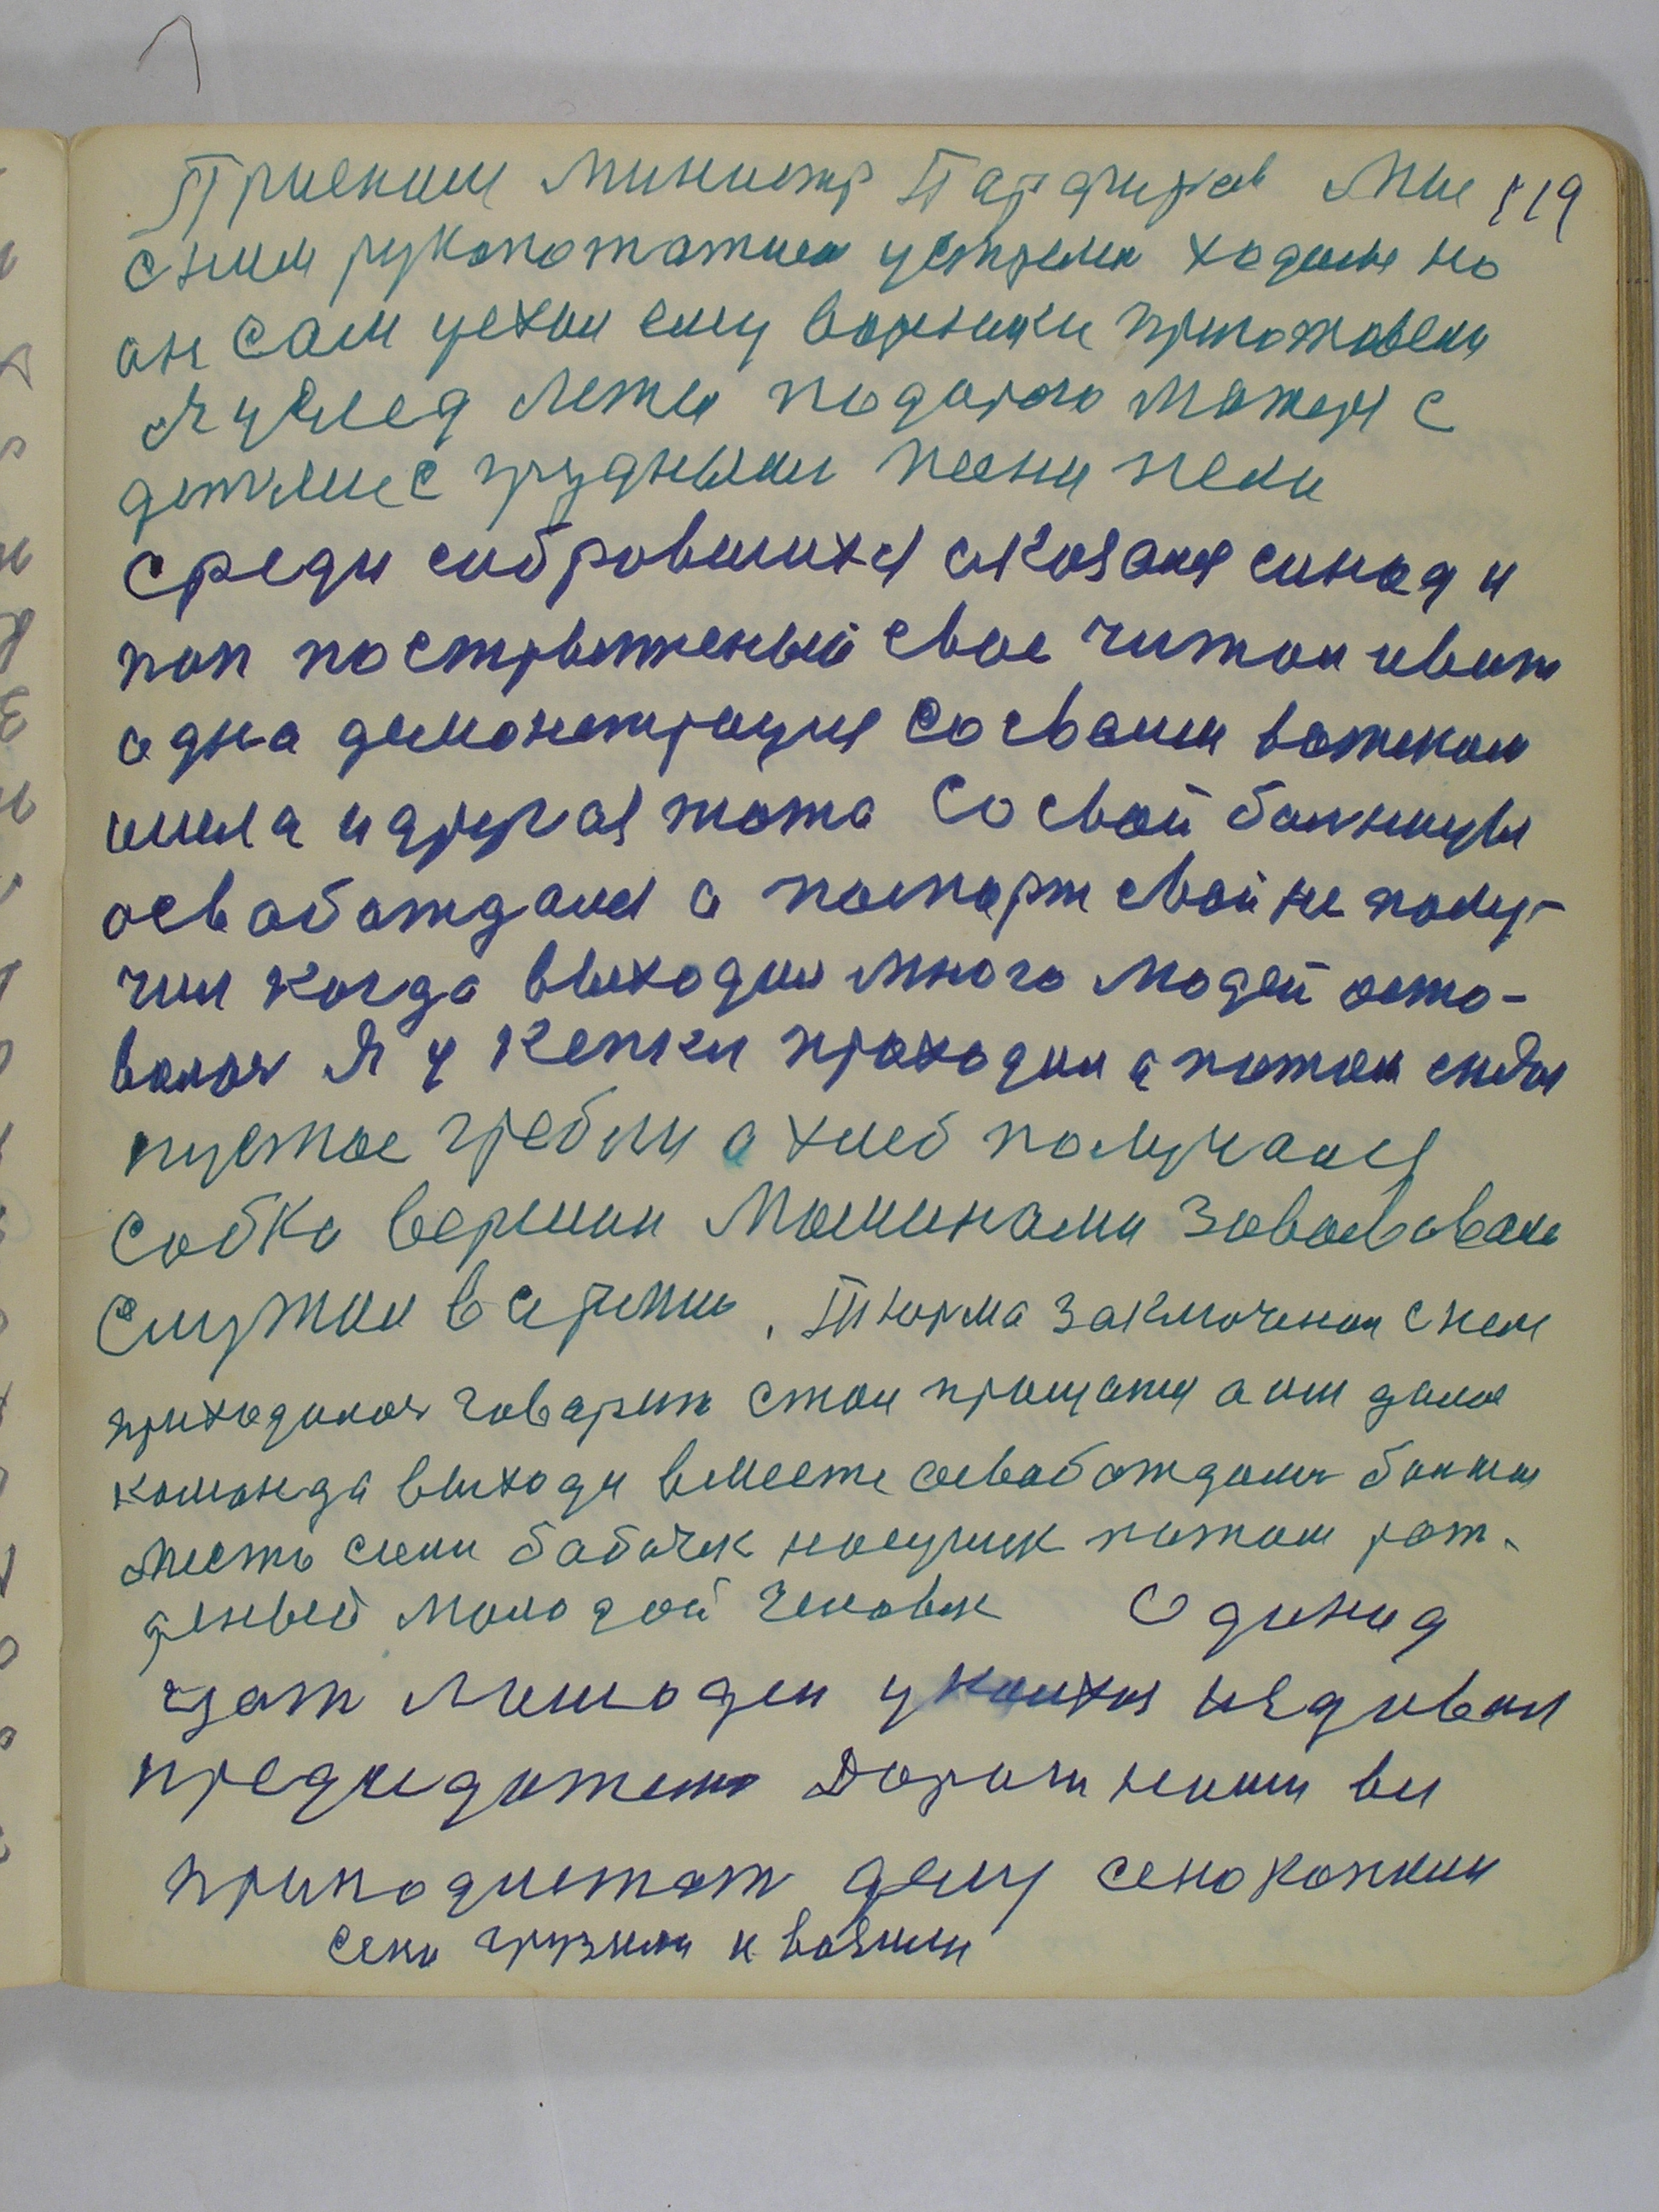 Приехил Министр Парфиров Мы 119
с ним рукопожатием устрели ходили но
он сам уехал ему вареники приготовели
Я увлед Лежы подорого матеря с
детями с грудными песни пели
среди собровшихся оказался синод и
поп постриженый свое читал ивот
одна демонстрация со своим вожеком
шила и другая тожа со свой больницы
освобождался а поспорт свой не полу-
чил когда выходил много людей оста-
волоя Я у Кепки проходил а потом
пустое гребли а хлеб получался
собко вершил Мошинами Зовоевовал
Служил в армии. Тюрма заключонои с ней
приходился говарит стал прощатя а им дали
команда выходи вместе освобождали
месть семи бабачек насушек потом рож-
деный молодой человек Одинад
цат лишоден у няддивал
предцедотель Дороги нами вы
приподистат дему сенокопнил
сено грузили и возили